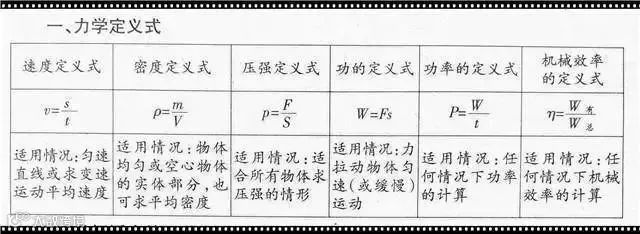 一、力学定义式
速度定义式
密度定义式
压强定义式
功的定义式
功率的定义式
机械效率
的定义式
v=s/t
ρ=m/V
p=F/S
W=Fs
P=W/t
η=W有/W总
适用情况:匀速
直线或求变速
运动平均速度
适用情况:物体
均匀或空心物体
的实体部分,也
可求平均密度
适用情况:适
合所有物体求
压强的情形
适用情况:力
拉动物体匀
速(或缓慢)
运动
适用情况:任
何情况下功率
的计算
适用情况:任
何情况下机械
效率的计算